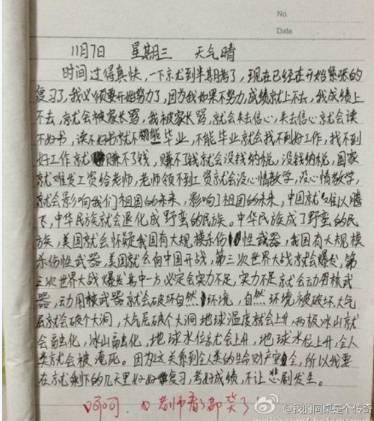 No.
Date
11月7日 星期三 天气晴
时间过得真快,一下就到半期考了,现在已经在开始紧张的
复习了,我必须要开始努力了,因为我如果不努力,成绩就上不去,我成绩上
不去,就会被家长骂,我被家长骂,就会失去信心,失去信心就会读
不好书,读不好书就不能毕业,不能毕业就会找不到好工作,找不到
好工作就赚不了钱,赚不了钱就会没钱纳税,没钱纳税,国家
就难发工资给老师,老师领不到工资就会没心情教学,没心情教学,
就会影响我们祖国的未来,影响了祖国的未来,中国就难以腾
飞,中华民族就会退化成野蛮的民族。中华民族成了野蛮的民
族,美国就会怀疑我国有大规模杀伤性武器,我国有大规模
杀伤性武器,美国就会向中国开战,第三次世界大战就会爆发,第
三次世界大战爆发其中一方必定会实力不足,实力不足就会动用核武
器,动用核武器就会破坏自然环境,自然环境被破坏大气
层就会破个大洞,大气层破个大洞地球温度就会上升,两极冰山就
会融化,冰山融化,地球水位就会上升,地球水位上升,全人
类就会被淹死。因为这关系到全人类的生命财产安全,所以我要
在仅剩下的几天里好好复习,考好成绩,不让悲剧发生。
呵呵 老师看了都笑了